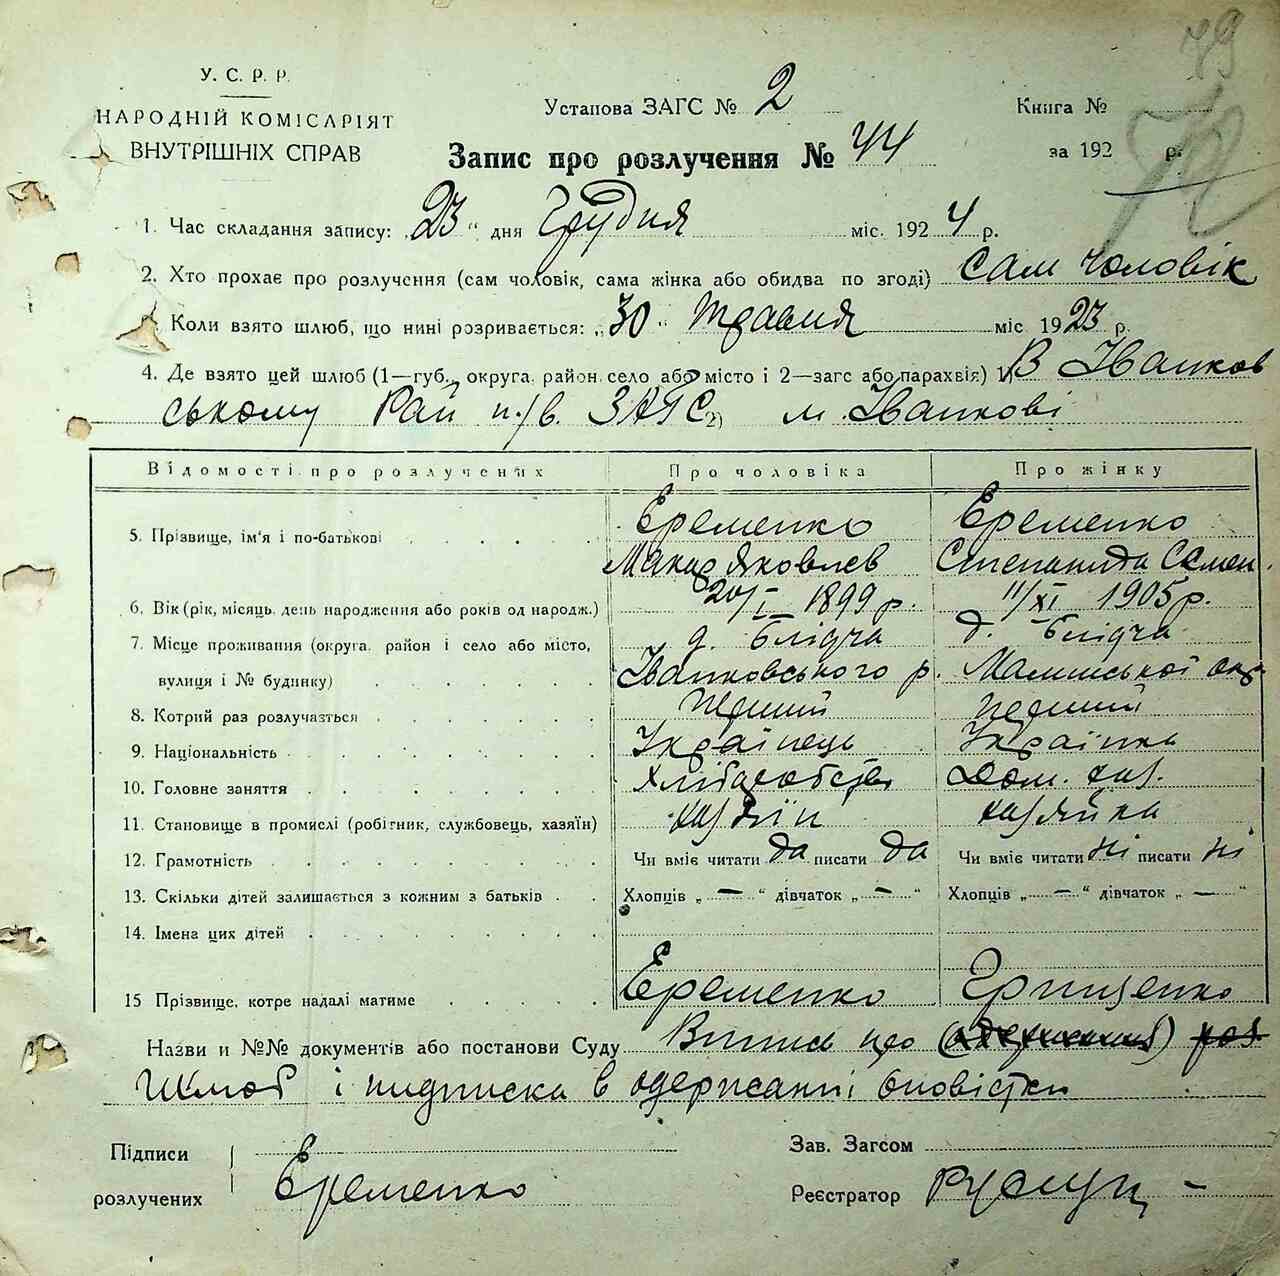 79
72
У. С. Р. Р.
НАРОДНІЙ КОМІСАРІЯТ
ВНУТРІШНІХ СПРАВ
Установа ЗАГС № 2
Книга №
Запис про розлучення № 44
за 192 р.
1. Час складання запису: „23“ дня Грудня міс. 1924 р.
2. Хто прохає про розлучення (сам чоловік, сама жінка або обидва по згоді) сам чоловік
Коли взято шлюб, що нині розривається: „30“ Травня міс 1923 р.
4. Де взято цей шлюб (1—губ., округа, район, село або місто і 2—загс або парахвія) 1) В Іванков
ському Рай п/в. ЗАГС 2) м. Іванкові
Відомості про розлучених Про чоловіка Про жінку
5. Прізвище, ім'я і по-батькові Еременко Еременко
Макар Яковлев Степанида Семен.
6. Вік (рік, місяць, день народження або років од народж.) 20/I 1899 р. 11/XI 1905 р.
7. Місце проживання (округа, район і село або місто, д. Блідча д. Блідча
вулиця і № будинку) Іванковського р. Малинської окр.
8. Котрий раз розлучається перший перший
9. Національність Українець Українка
10. Головне заняття Хлібаробство Дом. хаз.
11. Становище в промислі (робітник, службовець, хазяїн) хазяїн хазяйка
12. Грамотність Чи вміє читати да писати да Чи вміє читати ні писати ні
13. Скільки дітей залишається з кожним з батьків Хлопців „ — “ дівчаток „ — “ Хлопців „ — “ дівчаток „ — “
14. Імена цих дітей
15 Прізвище, котре надалі матиме Еременко Грищенко
Назви и №№ документів або постанови Суду Випис про
шлюб і підписка в одержанні оповістки
Підписи
розлучених Еременко
Зав. Загсом
Реєстратор